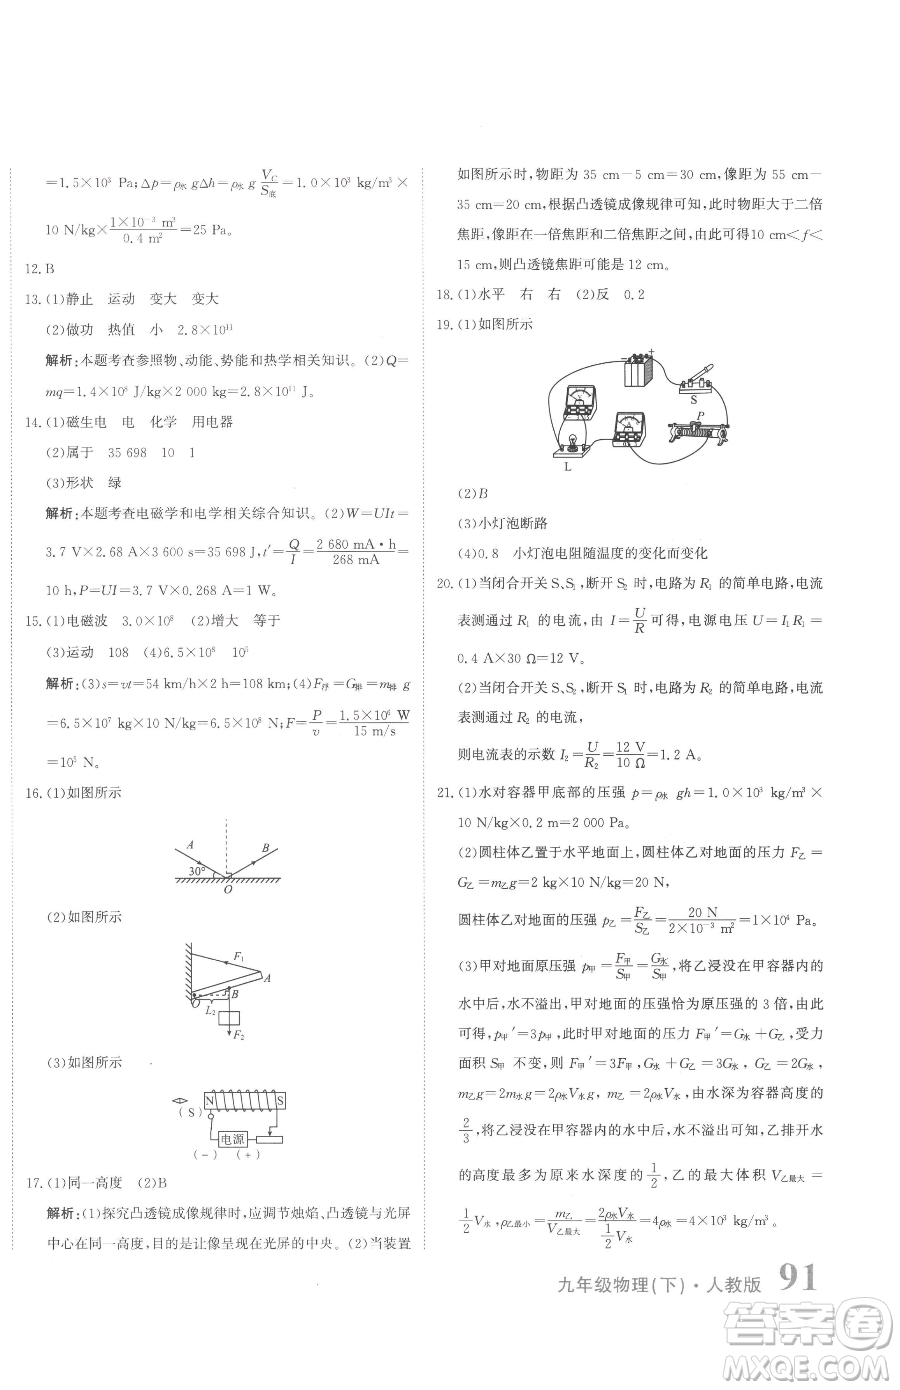 =1.5×10³ Pa;Δp=ρ水 gΔh=ρ水 g V_C/S底=1.0×10³ kg/m³×
10 N/kg×1×10⁻³ m³/0.4 m²=25 Pa。
12.B
13.(1)静止 运动 变大 变大
(2)做功 热值 小 2.8×10¹¹
解析:本题考查参照物、动能、势能和热学相关知识。(2)Q=
mq=1.4×10⁸ J/kg×2 000 kg=2.8×10¹¹ J。
14.(1)磁生电 电 化学 用电器
(2)属于 35 698 10 1
(3)形状 绿
解析:本题考查电磁学和电学相关综合知识。(2)W=UIt=
3.7 V×2.68 A×3 600 s=35 698 J,t′=Q/I=2 680 mA·h/268 mA=
10 h,P=UI=3.7 V×0.268 A=1 W。
15.(1)电磁波 3.0×10⁸ (2)增大 等于
(3)运动 108 (4)6.5×10⁸ 10⁵
解析:(3)s=vt=54 km/h×2 h=108 km;(4)F浮=G排=m排 g
=6.5×10⁷ kg×10 N/kg=6.5×10⁸ N;F=P/v=1.5×10⁶ W/15 m/s
=10⁵ N。
16.(1)如图所示
A B
30°
O
(2)如图所示
F₁
A
B
O
L₂
F₂
(3)如图所示
N S
(S)
电源
(−) (+)
17.(1)同一高度 (2)B
解析:(1)探究凸透镜成像规律时,应调节烛焰、凸透镜与光屏
中心在同一高度,目的是让像呈现在光屏的中央。(2)当装置
如图所示时,物距为 35 cm−5 cm=30 cm,像距为 55 cm−
35 cm=20 cm,根据凸透镜成像规律可知,此时物距大于二倍
焦距,像距在一倍焦距和二倍焦距之间,由此可得10 cm<f<
15 cm,则凸透镜焦距可能是 12 cm。
18.(1)水平 右 右 (2)反 0.2
19.(1)如图所示
− +
S
V
A
P
L
(2)B
(3)小灯泡断路
(4)0.8 小灯泡电阻随温度的变化而变化
20.(1)当闭合开关 S、S₁,断开 S₂ 时,电路为 R₁ 的简单电路,电流
表测通过 R₁ 的电流,由 I=U/R 可得,电源电压 U=I₁R₁=
0.4 A×30 Ω=12 V。
(2)当闭合开关 S、S₂,断开 S₁ 时,电路为 R₂ 的简单电路,电流
表测通过 R₂ 的电流,
则电流表的示数 I₂=U/R₂=12 V/10 Ω=1.2 A。
21.(1)水对容器甲底部的压强 p=ρ水 gh=1.0×10³ kg/m³×
10 N/kg×0.2 m=2 000 Pa。
(2)圆柱体乙置于水平地面上,圆柱体乙对地面的压力 F乙=
G乙=m乙g=2 kg×10 N/kg=20 N,
圆柱体乙对地面的压强 p乙=F乙/S乙=20 N/2×10⁻³ m²=1×10⁴ Pa。
(3)甲对地面原压强 p甲=F甲/S甲=G水/S甲,将乙浸没在甲容器内的
水中后,水不溢出,甲对地面的压强恰为原压强的 3 倍,由此
可得,p甲′=3p甲,此时甲对地面的压力 F甲′=G水+G乙,受力
面积 S甲 不变,则 F甲′=3G水,G水+G乙=3G水,G乙=2G水,
m乙g=2m水g=2ρ水V水g,m乙=2ρ水V水,由水深为容器高度的
2/3,将乙浸没在甲容器的水中时,水不溢出,可得水面上升
的高度最大是水深的 1/2,乙的体积最大值 V乙最大=
1/2V水,ρ乙最小=m乙/V乙最大=2ρ水V水/(1/2V水)=4ρ水=4×10³ kg/m³。
九年级物理(下)·人教版 91
答案圈
MXQE.COM